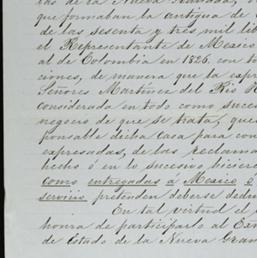 las de la Nueva Granada,
que formaban la antigua de
de las sesenta y tres mil lib
el Representante de Mexico
al de Colombia en 1826, con to
ciones, de manera que la expre
Señores Martinez del Rio
considerada en todo como suces
negocio de que se trata, que
ponsable dicha casa para con
expresadas, de las reclama
hecho ó en lo sucesivo hicier
como entregadas á Mexico ó
servicio, pretenden deberse dedu
En tal virtud el
honra de participarlo al Ex
de Estado de la Nueva Gran